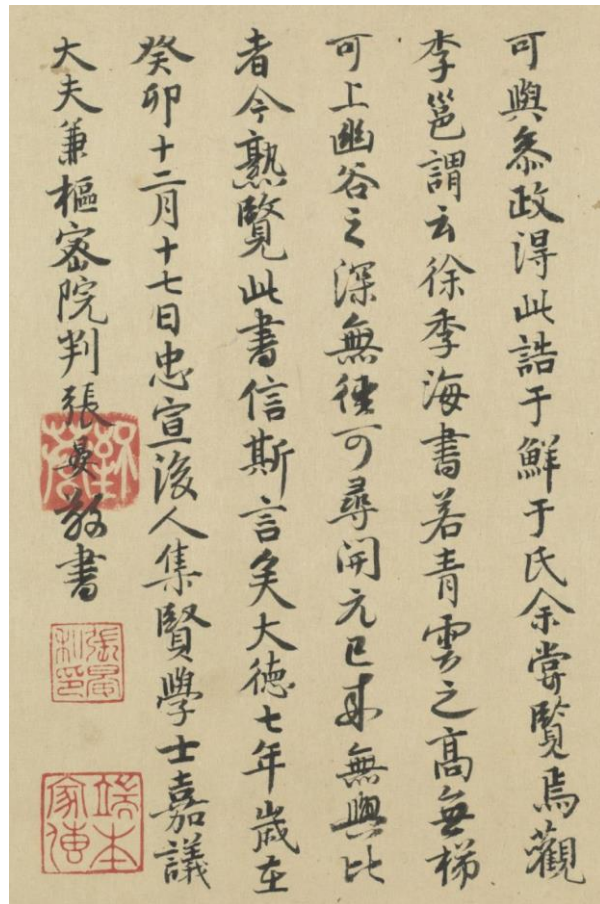 可與叅政得此誥于鮮于氏余甞覽焉觀
李邕謂云徐季海書若青雲之髙無梯
可上幽谷之深無徑可尋開元已來無與比
者今熟覽此書信斯言矣大德七年歲在
癸卯十二月十七日忠宣後人集賢學士嘉議
大夫兼樞密院判張晏敬書
張晏私印
端本家傳